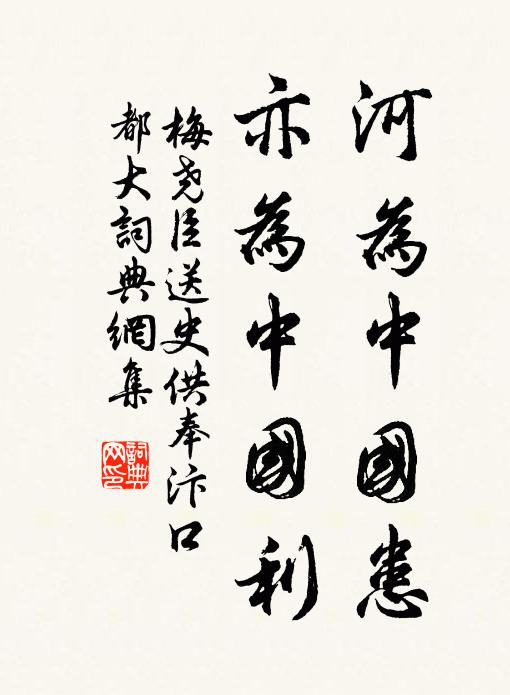 河為中國患
亦為中國利
梅堯臣送史供奉汴口
都大詞典網集
詞典网印